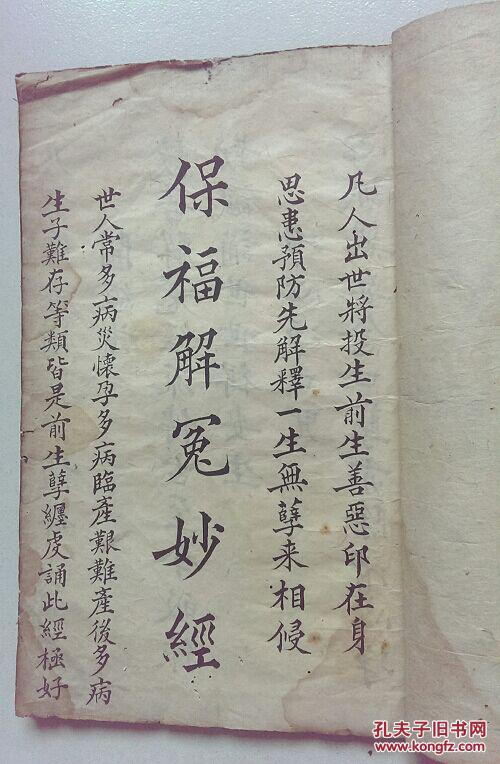 凡人出世將投生前生善惡印在身
思患預防先解釋一生無孽来相侵
保福解冤妙經
世人常多病災懷孕多病臨產艱難產後多病
生子難存等類皆是前生孽纏虔誦此經極好
孔夫子旧书网
www.kongfz.com